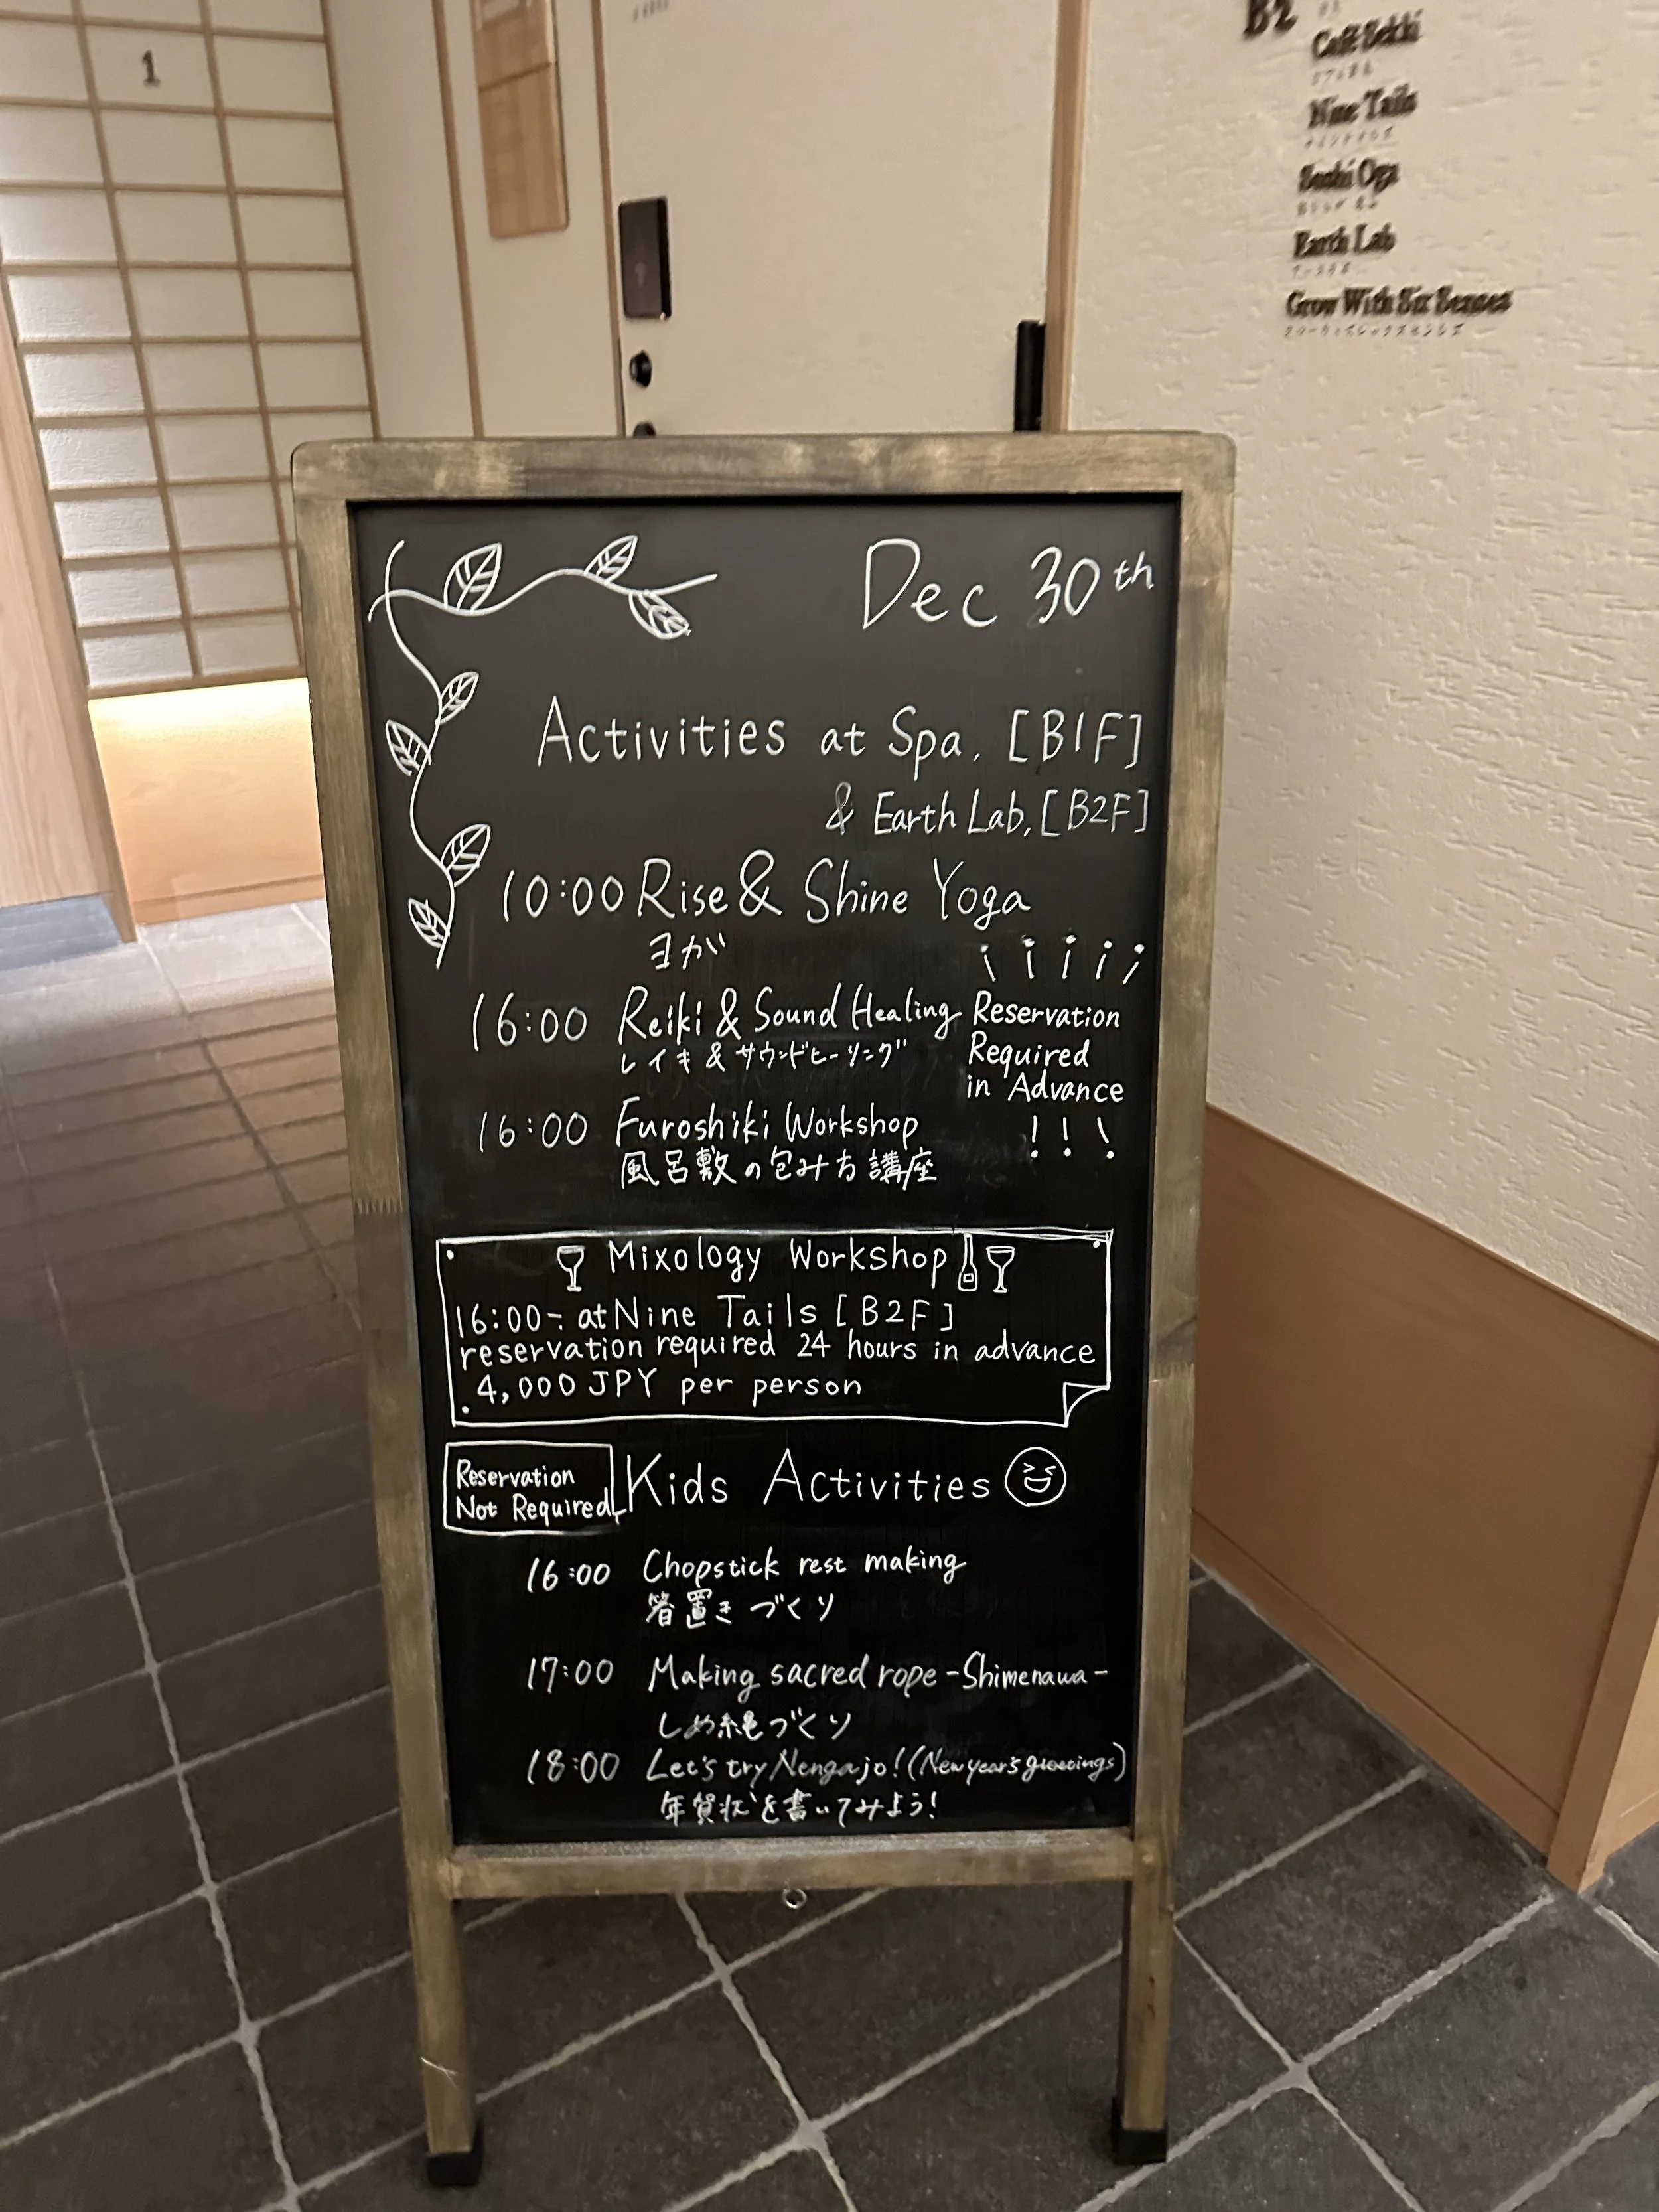 1
B2
Café Sekki
Nine Tails
ナインテイルズ
Sushi Oga
Earth Lab
アースラボ
Grow With Six Senses
グローウィズシックスセンシズ
Dec 30th
Activities at Spa, [B1F]
& Earth Lab, [B2F]
10:00 Rise & Shine Yoga
ヨガ
¡ ¡ ¡ ¡ ¡
16:00 Reiki & Sound Healing
レイキ & サウンドヒーリング
Reservation
Required
in Advance
! ! !
16:00 Furoshiki Workshop
風呂敷の包み方講座
Mixology Workshop
16:00~ at Nine Tails [B2F]
reservation required 24 hours in advance
4,000 JPY per person
Reservation
Not Required
Kids Activities
16:00 Chopstick rest making
箸置きづくり
17:00 Making sacred rope -Shimenawa-
しめ縄づくり
18:00 Let's try Nengajo! (New year's greetings)
年賀状を書いてみよう!